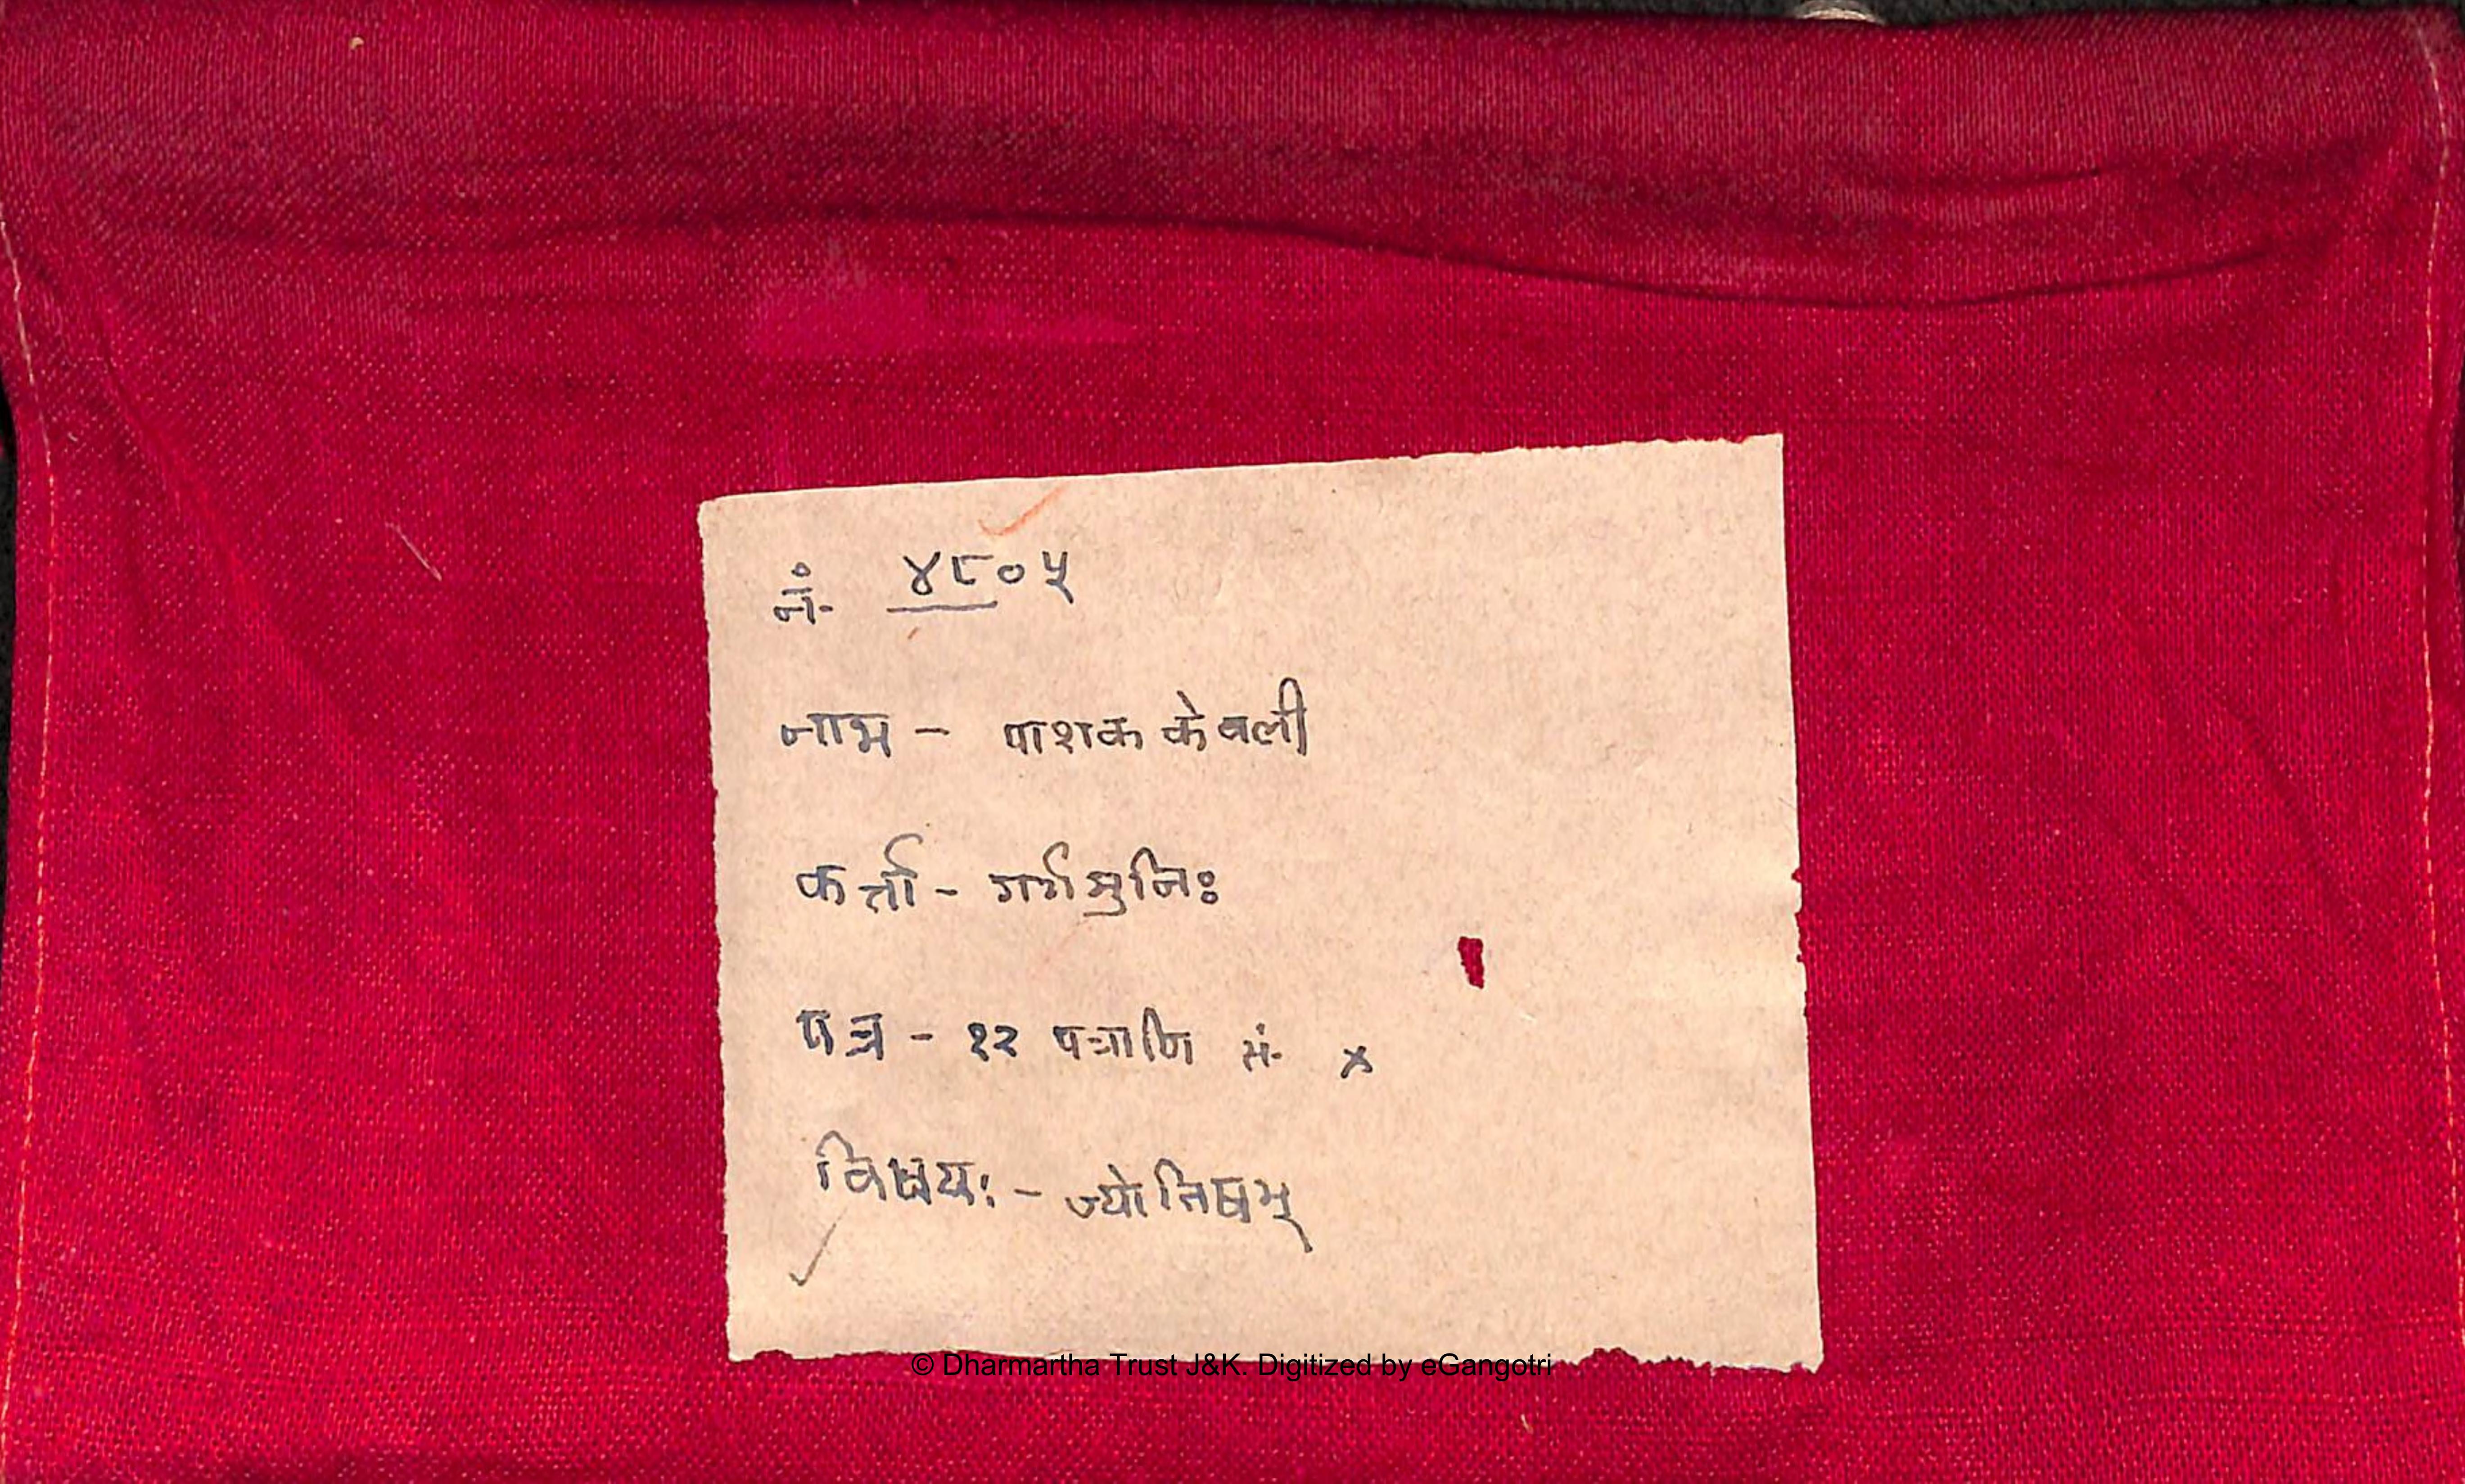 नं. ४८०५
नाम - पाशक केवली
कर्त्ता - गर्गमुनिः
पत्र - १२ पत्राणि सं. x
विषयः - ज्योतिषम्
© Dharmartha Trust J&K. Digitized by eGangotri